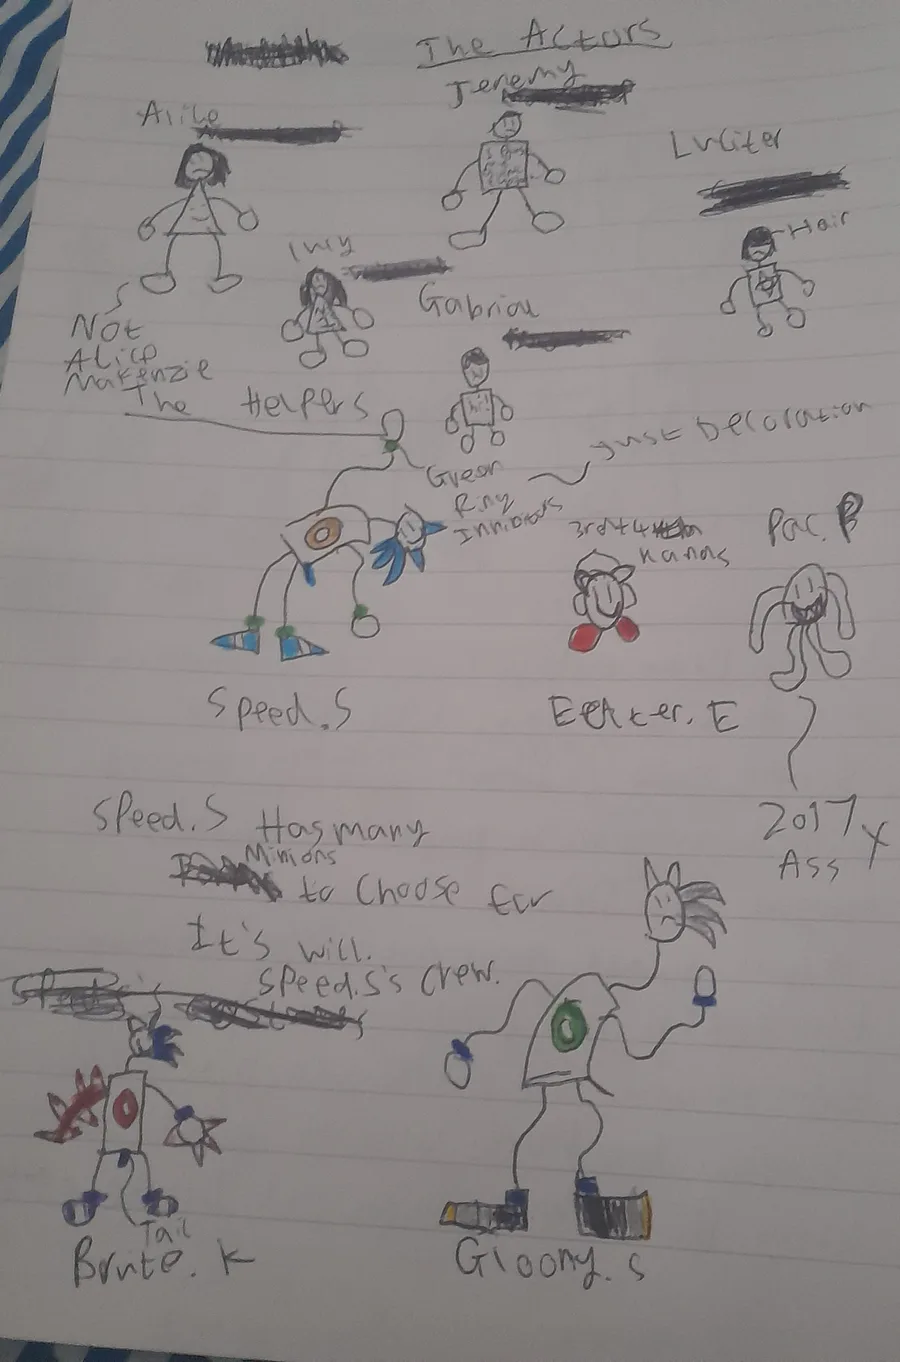 The Actors
Jeremy
Alice
Lucifer
Hair
Ivy
Gabriau
Not
Alice
Makenzie
The Helpers
just Decoration
Green
Ring
3rd + 4
Hands
Pac. P
Speed.S
E. E
2017
Ass
Speed.S Has many
Minions
to Choose for
It's will.
Speed.S's Crew.
Tail
Brute. K
Gloomy. S